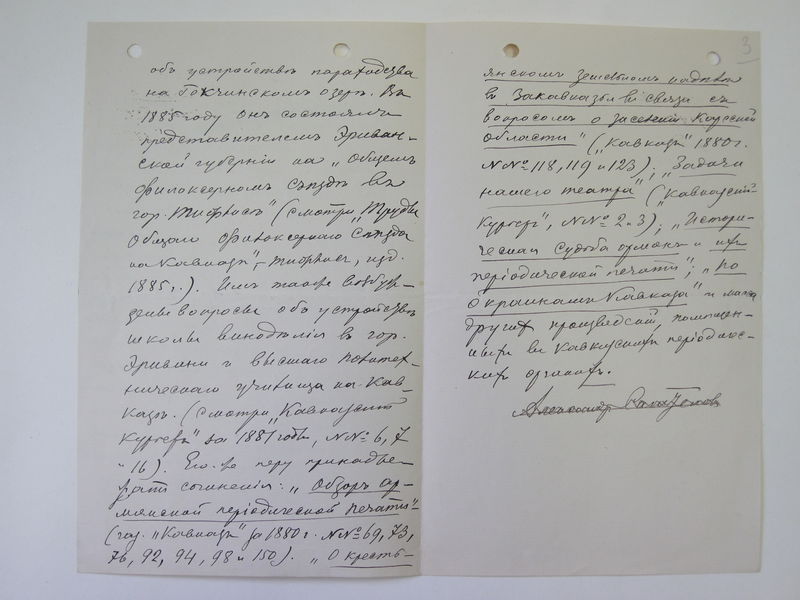 объ устройствѣ пароходства
на Гокчинскомъ озерѣ. Въ
1885 году онъ состоялъ
представителемъ Эриван-
ской губерніи на „Общемъ
филоксерномъ съѣздѣ въ
гор. Тифлисѣ" (смотри „Труды
Общаго филоксернаго съѣзда
на Кавказѣ", Тифлисъ, изд.
1885 г.). Имъ также возбуж-
дены вопросы объ устройствѣ
школы винодѣлія въ гор.
Эривани и высшаго политех-
ническаго училища на Кав-
казѣ. (смотри „Кавказскій
Курьеръ" за 1881 годъ, №№ 6, 7
и 16). Его-же перу принадле-
жатъ сочиненія: „Обзоръ ар-
мянской періодической печати"
(газ. „Кавказъ" за 1880 г. №№ 69, 73,
76, 92, 94, 98 и 150). „О кресть-
3
янскомъ земельномъ надѣлѣ
въ Закавказьи въ связи съ
вопросомъ о заселеніи Карсской
области" („Кавказъ" 1880 г.
№№ 118, 119 и 123); „Задачи
нашего театра" („Кавказскій
Курьеръ", №№ 2 и 3); „Истори-
ческая судьба армянъ и ихъ
періодической печати"; „По
окраинамъ Кавказа" и масса
другихъ произведеній, помѣщен-
ныхъ въ Кавказскихъ періодичес-
кихъ органахъ.
Александръ